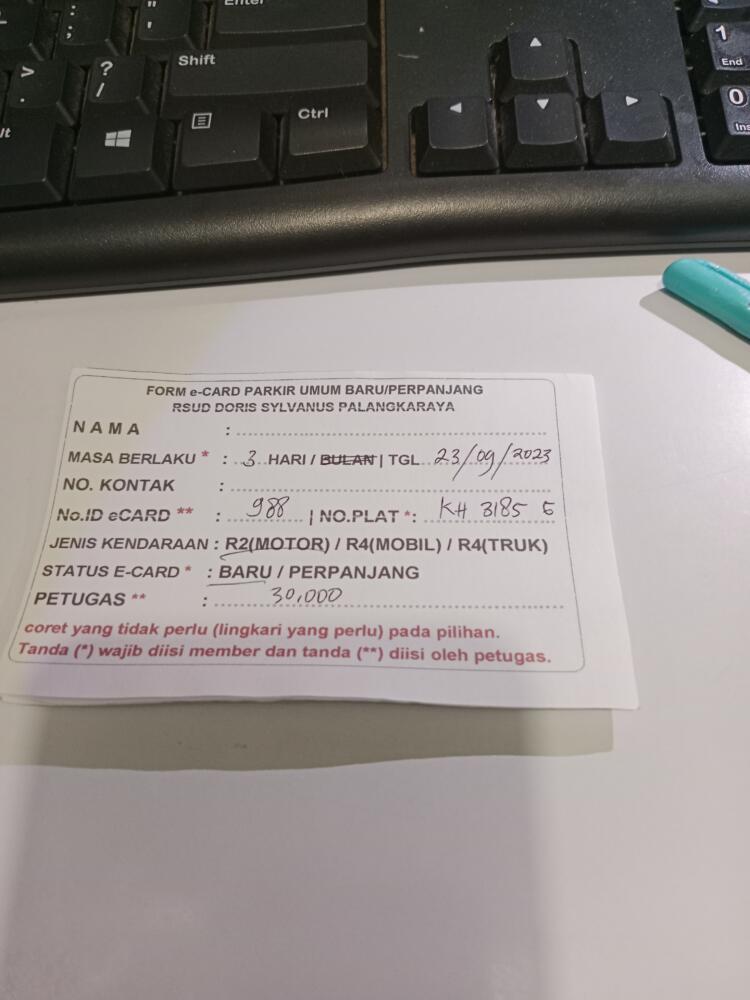 Enter
: ;
" '
Shift
> .
? /
lt
Ctrl
1 End
0 Ins
FORM e-CARD PARKIR UMUM BARU/PERPANJANG
RSUD DORIS SYLVANUS PALANGKARAYA
NAMA :
MASA BERLAKU * : 3 HARI / BULAN | TGL 23/09/2023
NO. KONTAK :
No.ID eCARD ** : 988 | NO.PLAT *: KH 3185 E
JENIS KENDARAAN : R2(MOTOR) / R4(MOBIL) / R4(TRUK)
STATUS E-CARD * : BARU / PERPANJANG
PETUGAS ** : 30,000
coret yang tidak perlu (lingkari yang perlu) pada pilihan.
Tanda (*) wajib diisi member dan tanda (**) diisi oleh petugas.